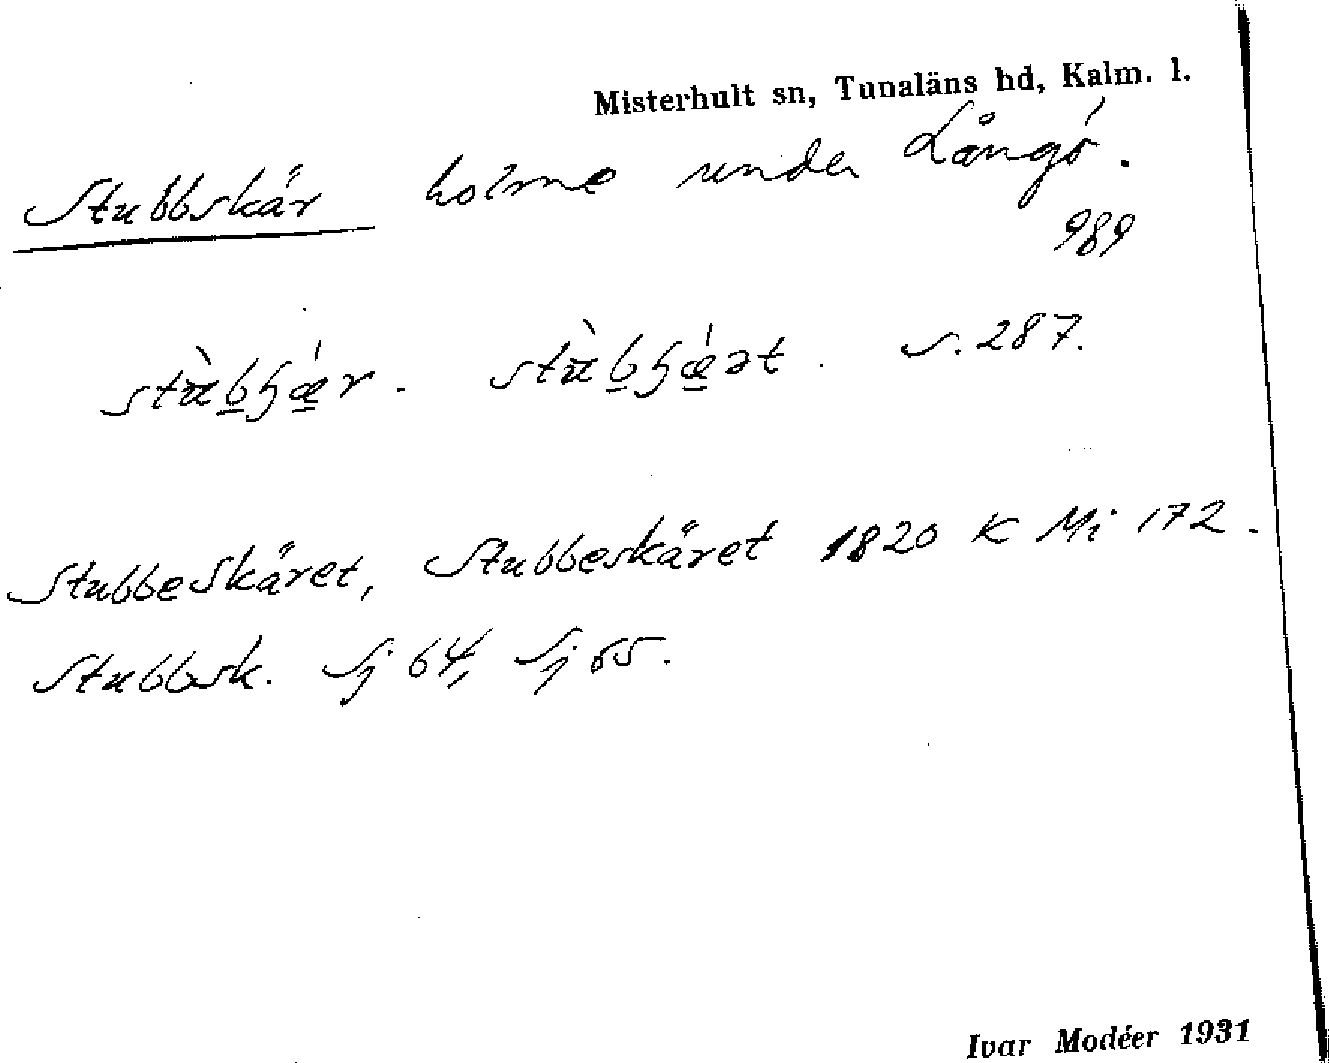 Misterhult sn, Tunaläns hd, Kalm. l.
Stubbskär holme under Långö.
989
s. 287.
StubbeSkäret, Stubbeskäret 1820 K Mi 172.
Stubbsk. Sj 64, Sj 65.
Ivar Modéer 1931